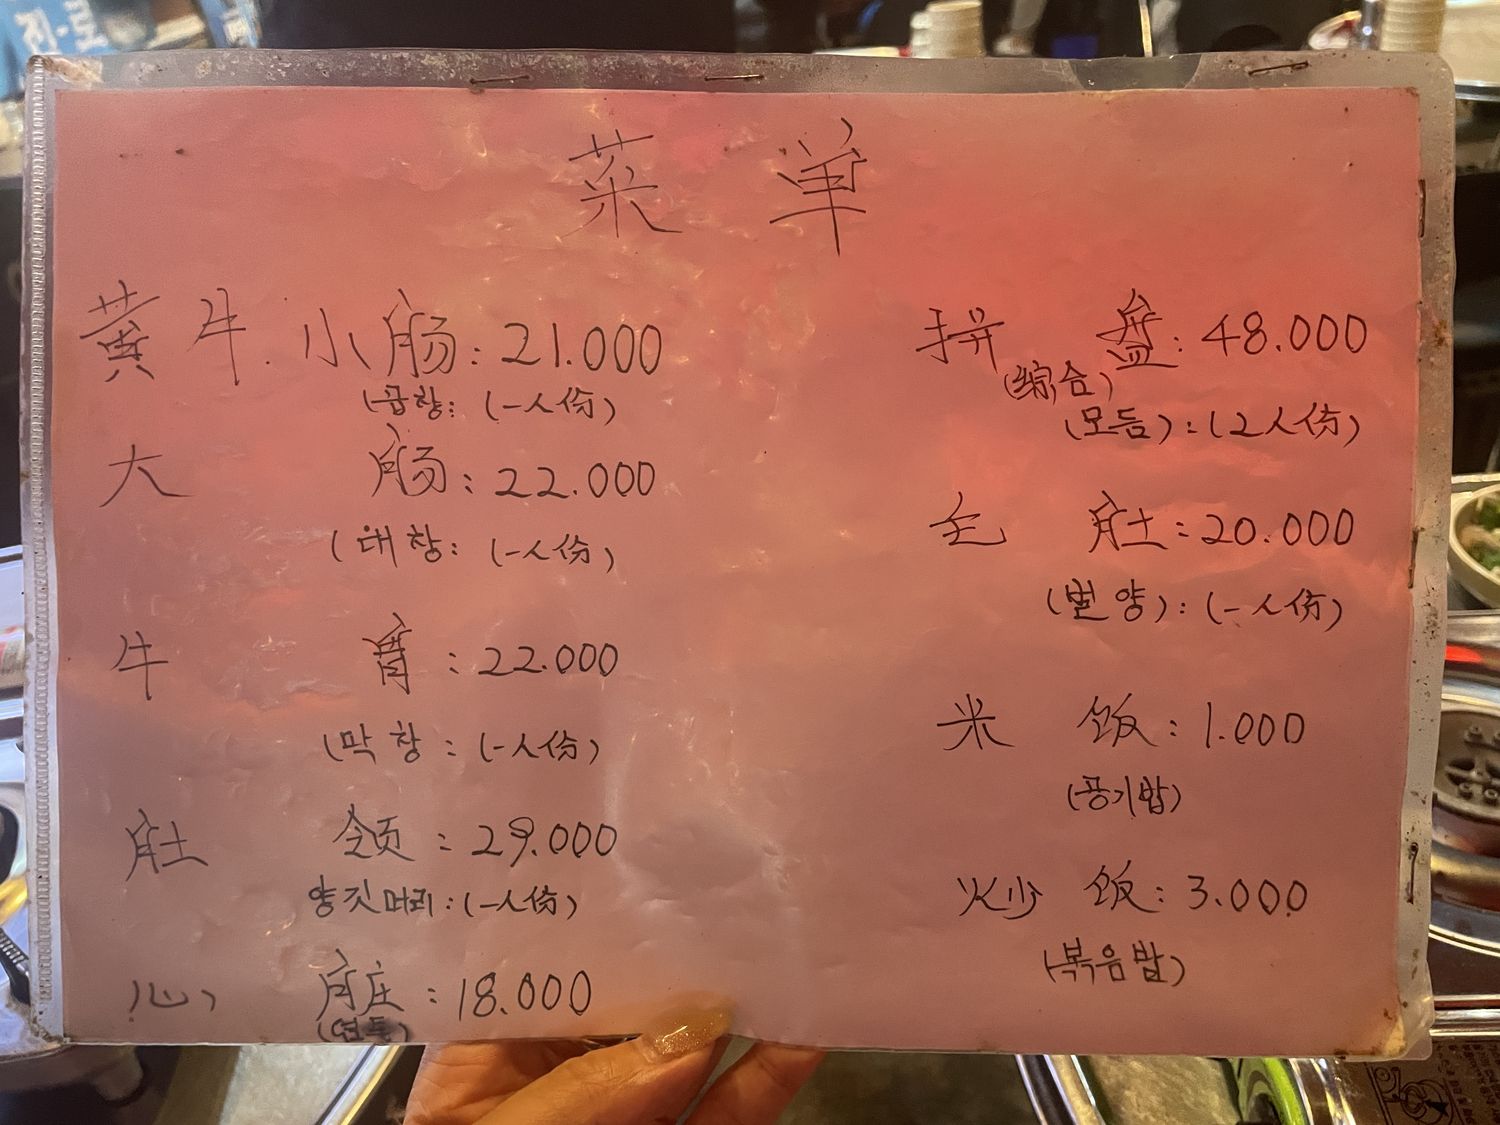 菜 单
黄牛.小肠:21.000
(곱창: (一人份)
大 肠:22.000
(대창: (一人份)
牛 胃:22.000
(막창: (一人份)
肚 领:29.000
양깃머리:(一人份)
心 脏:18.000
(염통)
拼 盘:48.000
(综合)
(모듬):(2人份)
毛 肚:20.000
(벌양):(一人份)
米 饭:1.000
(공기밥)
炒 饭:3.000
(볶음밥)